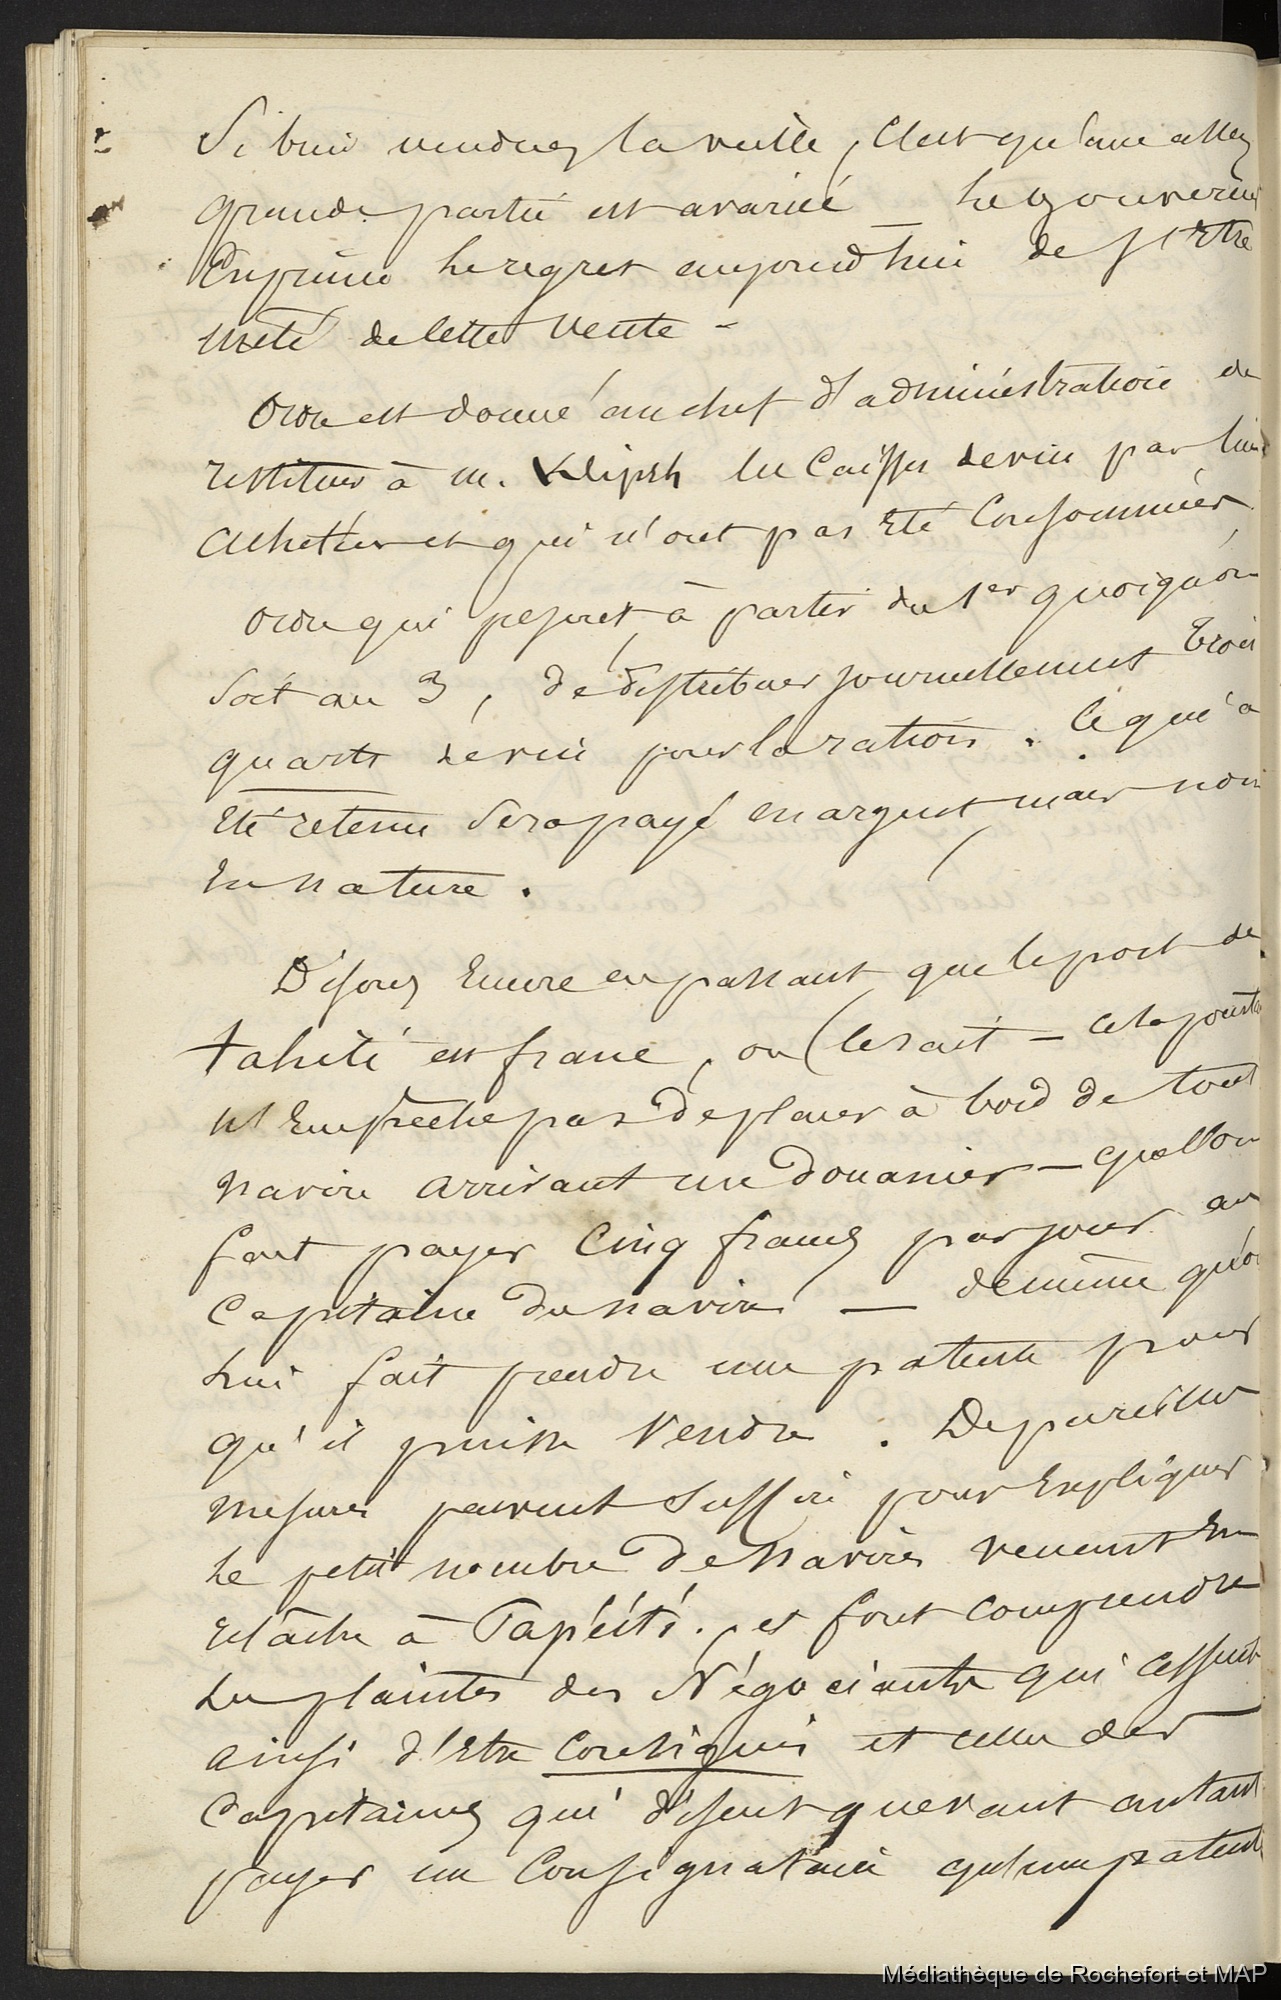 Si bien vendues la veille, c'est qu'une assez
grande partie est avariée _ Le gouverneur
Exprime le regret aujourd'hui de s'être
mêlé de cette vente -
Ordre est donné au chef d'administration de
restituer à M. Klipsh les caisses de vin par lui
achetées et qui n'ont pas été consommées,
Ordre qui prescrit, à partir du 1er quoiqu'on
soit au 3, de distribuer journellement trois
quarts de vin pour la ration. Ce qui a
été retenu sera payé en argent, mais non
en nature.
Disons encore en passant que le port de
Tahiti est franc, on le sait _ cela pourtant
n'empêche pas de placer à bord de tout
navire arrivant un douanier _ que l'on
fait payer cinq francs par jour au
capitaine du navire _ de même qu'on
lui fait prendre une patente pour
qu'il puisse vendre. De pareilles
mesures peuvent suffire pour expliquer
le petit nombre de navires venant en
relâche à Papéiti. et font comprendre
les plaintes des Négociants qui cessent
ainsi d'être consignés et celles des
capitaines qui disent que vant autant
payer un consignataire qu'une patente
Médiathèque de Rochefort et MAP